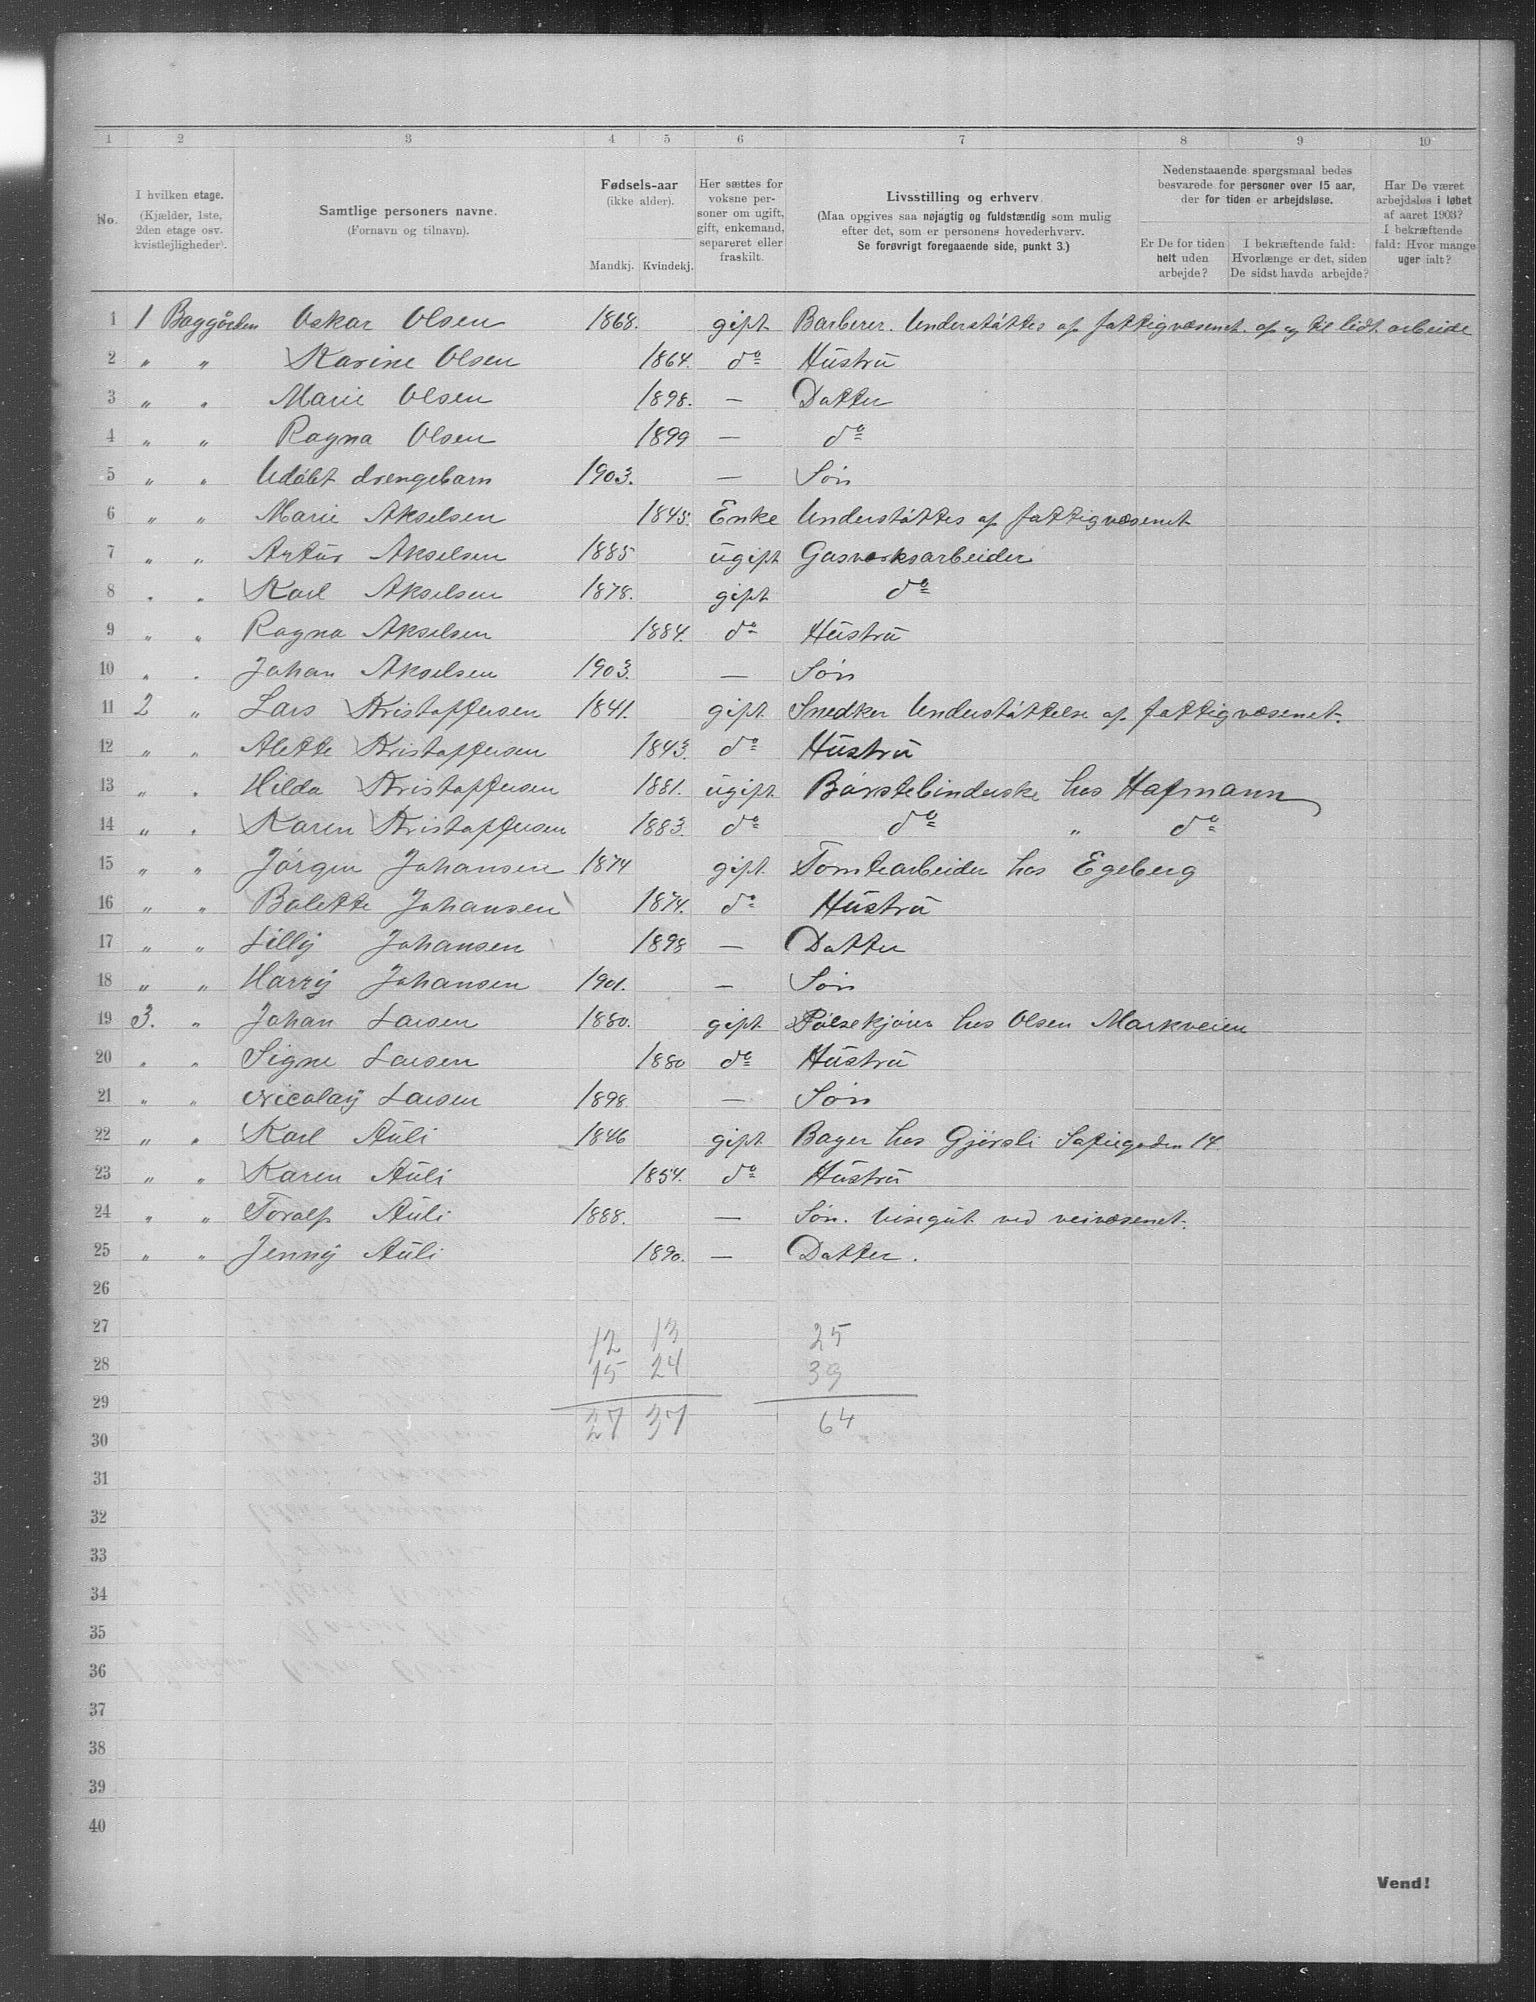 1 2 3 4 5 6 7 8 9 10
No.
I hvilken etage.
(Kjælder, 1ste,
2den etage osv.
kvistlejligheder).
Samtlige personers navne.
(Fornavn og tilnavn).
Fødsels-aar
(ikke alder).
Mandkj. Kvindekj.
Her sættes for
voksne per-
soner om ugift,
gift, enkemand,
separeret eller
fraskilt.
Livsstilling og erhverv.
(Maa opgives saa nøjagtig og fuldstændig som mulig
efter det, som er personens hovederhverv.
Se forøvrigt foregaaende side, punkt 3.)
Nedenstaaende spørgsmaal bedes
besvarede for personer over 15 aar,
der for tiden er arbejdsløse.
Er De for tiden
helt uden
arbejde?
I bekræftende fald:
Hvorlænge er det, siden
De sidst havde arbejde?
Har De været
arbejdsløs i løbet
af aaret 1903?
I bekræftende
fald: Hvor mange
uger ialt?
1 1 Baggården Oskar Olsen 1868. gift Barberer. Understøttes af fattigvæsenet. af og til lidt arbeide
2 " " Karine Olsen 1864. do Hustru
3 " " Marie Olsen 1898. — Datter
4 " " Ragna Olsen 1899 — do
5 " " Udøbt drengebarn 1903. — Søn
6 " " Marie Akselsen 1845. Enke Understøttes af fattigvæsenet
7 " " Artur Akselsen 1885 ugift Gasverksarbeider
8 " " Karl Akselsen 1878. gift do
9 " " Ragna Akselsen 1884. do Hustru
10 " " Johan Akselsen 1903. — Søn
11 2 " Lars Kristoffersen 1841. gift Snedker Understøttelse af fattigvæsenet.
12 " " Alette Kristoffersen 1843. do Hustru
13 " " Hilda Kristoffersen 1881. ugift Børstebinderske hos Hofmann
14 " " Karen Kristoffersen 1883. do do " do
15 " " Jørgen Johansen 1874 gift Tomtearbeider hos Egeberg
16 " " Bolette Johansen 1874. do Hustru
17 " " Lilly Johansen 1898 — Datter
18 " " Harry Johansen 1901. — Søn
19 3. " Johan Larsen 1880. gift Pølsekjører hos Olsen Markveien
20 " " Signe Larsen 1880 do Hustru
21 " " Nicolay Larsen 1898 — Søn
22 " " Karl Auli 1846 gift Bager hos Gjørsli Sofiegaden 14.
23 " " Karen Auli 1854. do Hustru
24 " " Toralf Auli 1888. — Søn. Visergut ved veivæsenet.
25 " " Jenny Auli 1890. — Datter.
26
27 12 13 25
28 15 24 39
29 27 37 64
30
31
32
33
34
35
36
37
38
39
40
Vend!